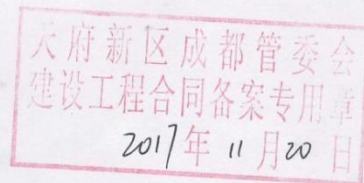 天府新区成都管委会
建设工程合同备案专用章
2017年11月20日